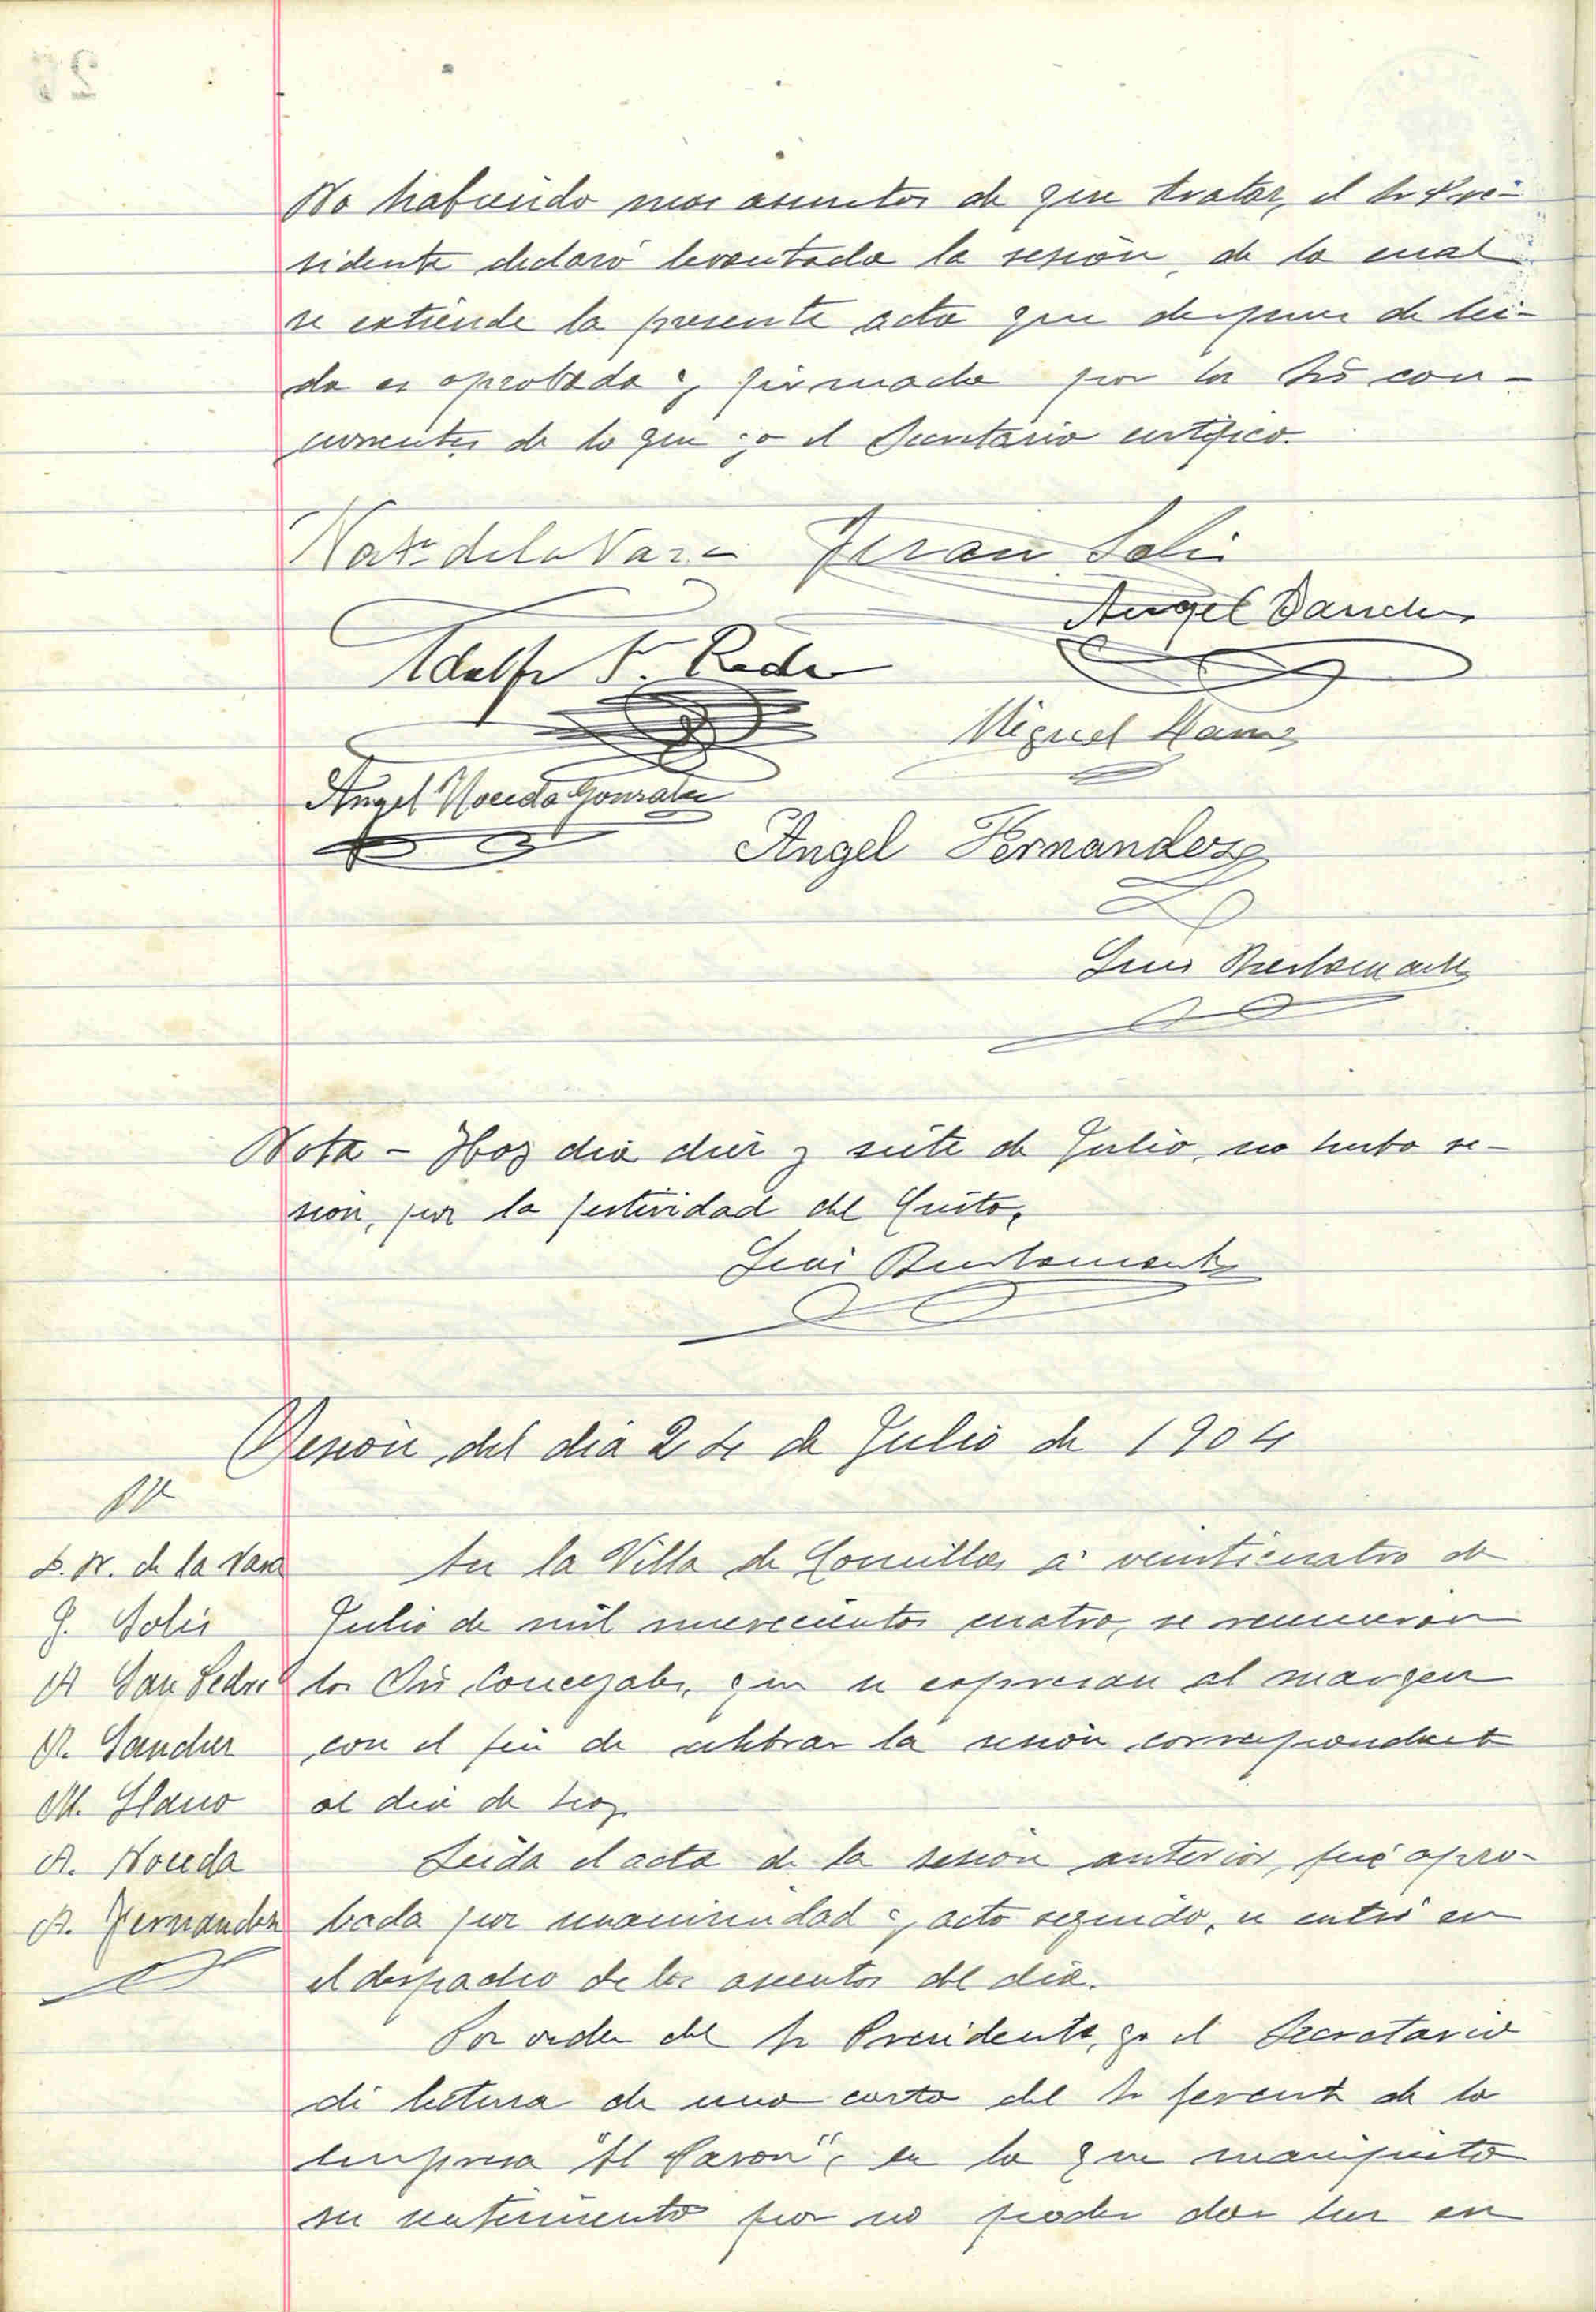 No habiendo mas asuntos de que tratar, el Sr Pre-
sidente declaró levantada la sesión, de la cual
se extiende la presente acta que despues de lei-
da es aprobada y firmada por los Srs con-
currentes de lo que yo el Secretario certifico.
de la Vara Solis
Angel Sanchez
Adolfo
Miguel Llano
Angel Noceda Gonzalez
Angel Fernandez
Luis Bustamante
Nota - Hoy dia diez y siete de Julio, no hubo se-
sion, por la festividad del Cristo.
Luis Bustamante
Sesión del dia 24 de Julio de 1904
D. N. de la Vara
J. Solis
A San Pedro
A. Sanchez
M. Llano
A. Noceda
A. Fernandez
En la Villa de Comillas á veinticuatro de
Julio de mil novecientos cuatro, se reunieron
los Srs Concejales, que se expresan al margen
con el fin de celebrar la sesión correspondiente
al dia de hoy.
Leida el acta de la sesion anterior, fué apro-
bada por unanimidad y, acto seguido, se entró en
el despacho de los asuntos del dia.
Por orden del Sr Presidente, yo el Secretario
di lectura de una carta del Sr Gerente de la
Empresa "El Pason", en la que manifiesta
su sentimiento por no poder dar luz en